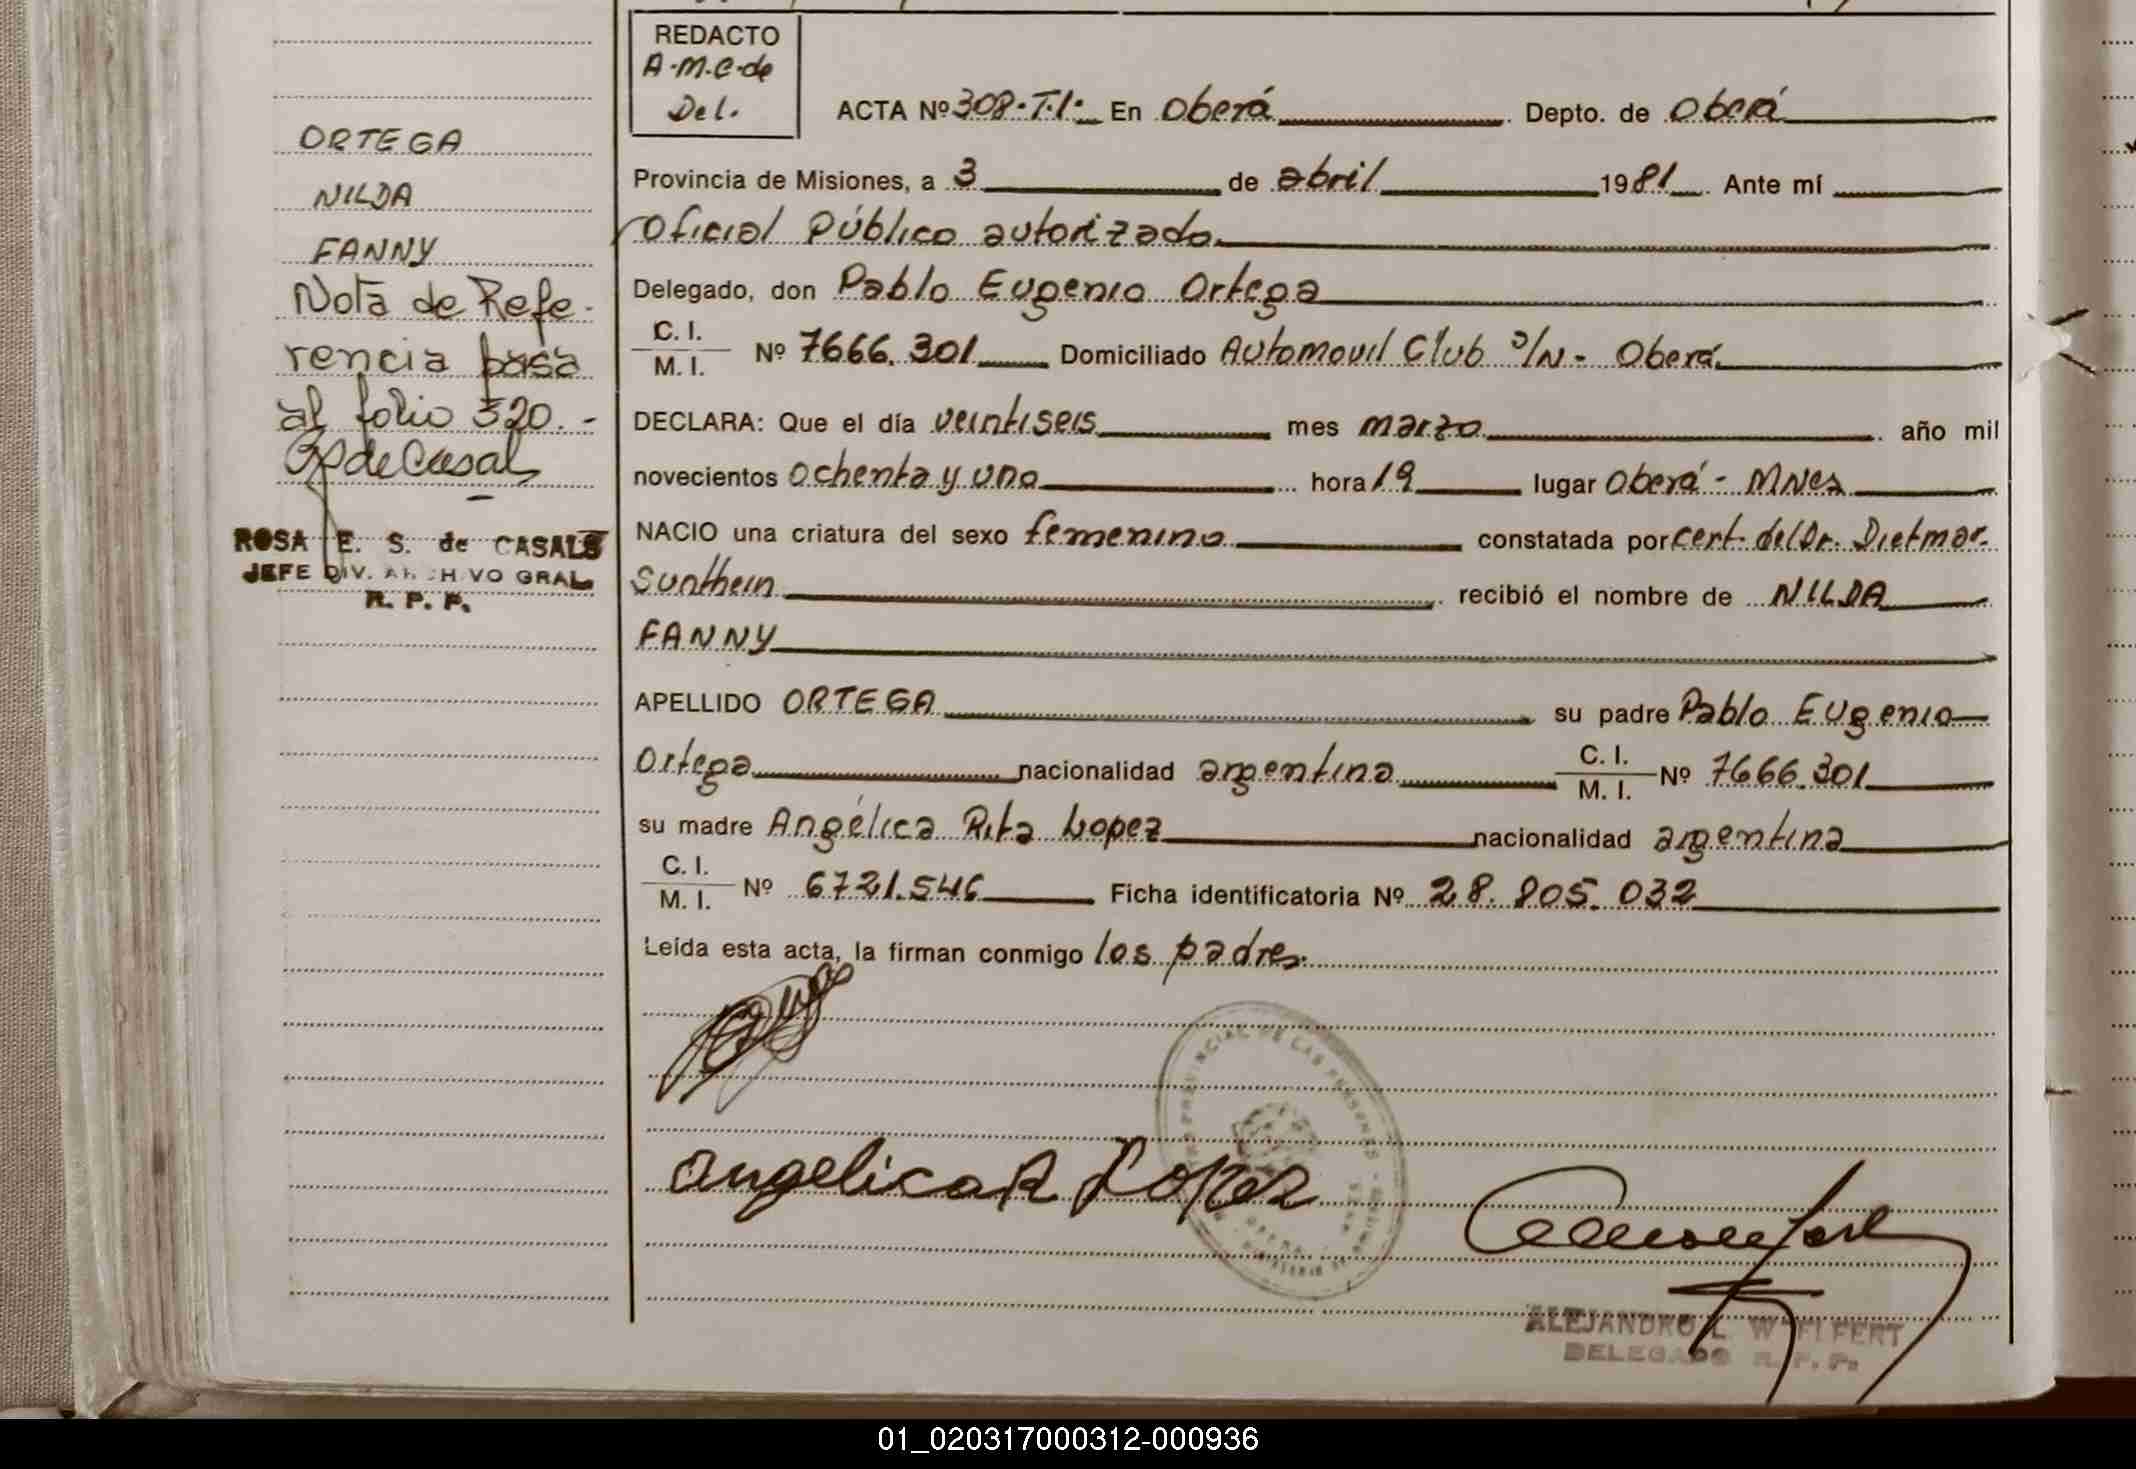 ORTEGA
NILDA
FANNY
Nota de Refe-
rencia pasa
al folio 320.-
de Casals
ROSA E. S. de CASALS
JEFE DIV. ARCHIVO GRAL
R. P. P.
REDACTO
A.M.C. de
Del.
ACTA Nº 308.T.1: En Oberá. Depto. de Oberá
Provincia de Misiones, a 3 de abril 1981. Ante mí
Oficial Público autorizado.
Delegado, don Pablo Eugenio Ortega
C. I.
M. I. Nº 7666.301 Domiciliado Automovil Club s/N - Oberá
DECLARA: Que el día veintiseis mes marzo. año mil
novecientos ochenta y uno hora 19 lugar Oberá - Mnes
NACIO una criatura del sexo femenino constatada por cert. del Dr. Dietmar
Sunthein. recibió el nombre de NILDA
FANNY
APELLIDO ORTEGA su padre Pablo Eugenio
Ortega nacionalidad argentina C. I.
M. I. Nº 7666.301
su madre Angélica Rita Lopez nacionalidad argentina
C. I.
M. I. Nº 6721.546 Ficha identificatoria Nº 28.805.032
Leída esta acta, la firman conmigo los padres.
Angelica R Lopez
PROVINCIAL DE LAS PERSONAS
OBERA
ALEJANDRO L
DELEGADO R. P. P.
01_020317000312-000936